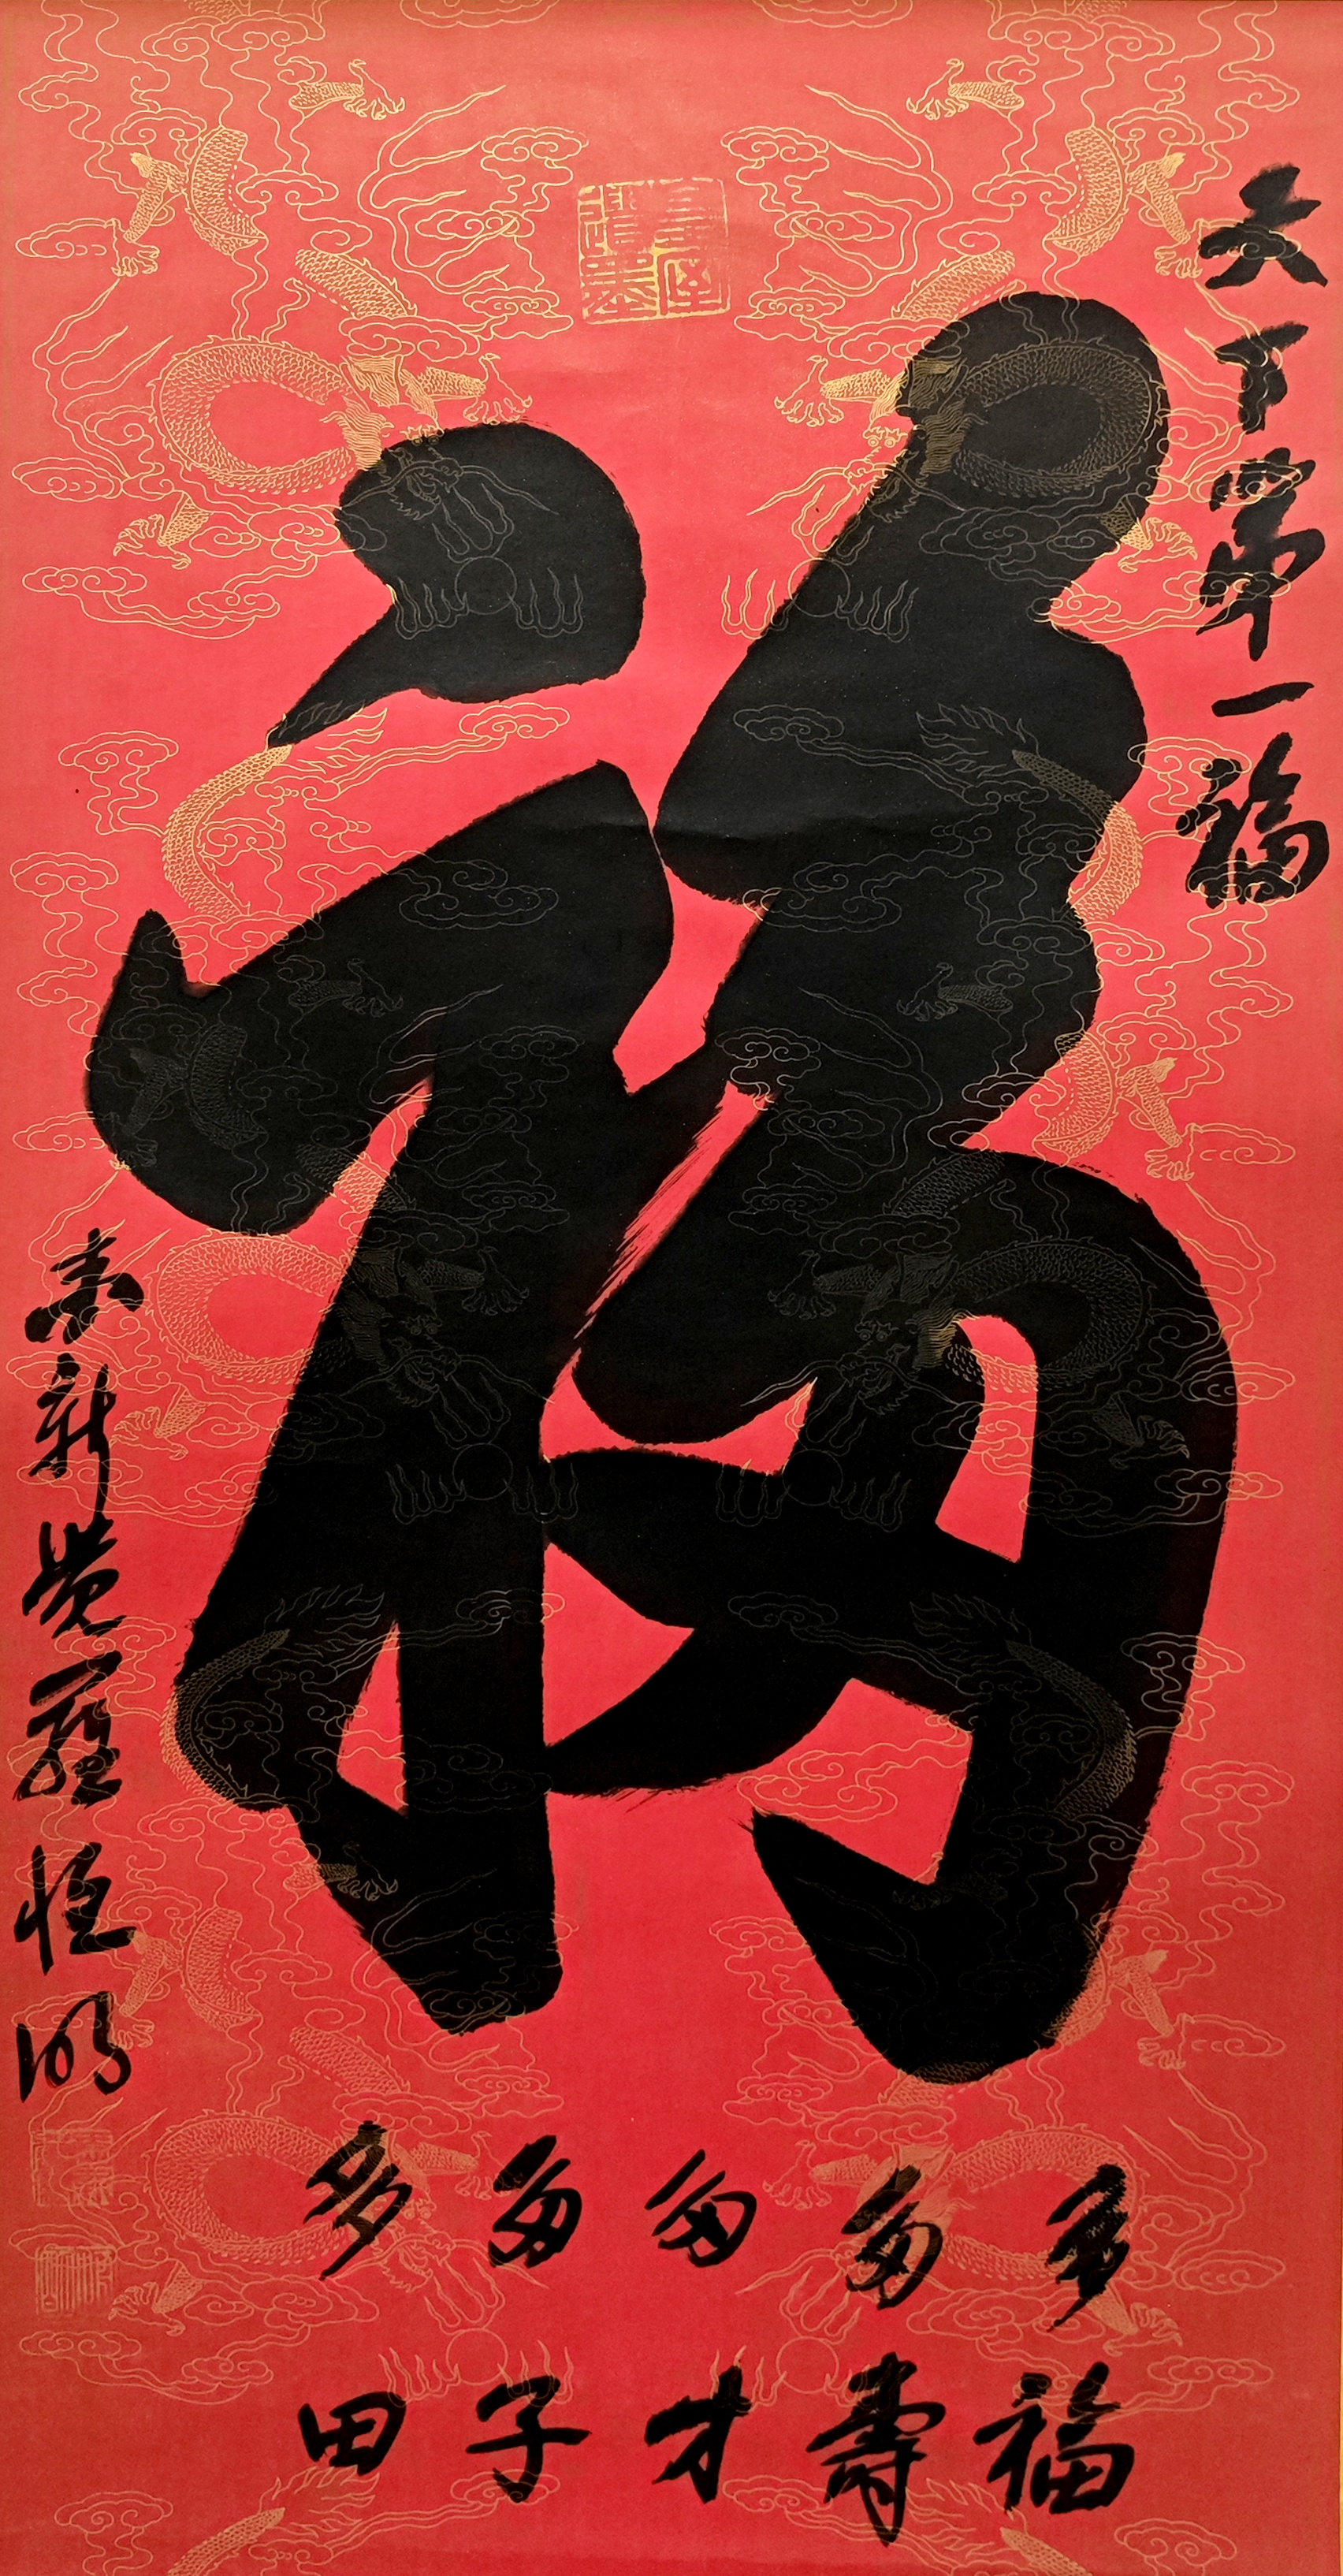 天下第一福
福
多福
多壽
多才
多子
多田
爱新覺羅恒明